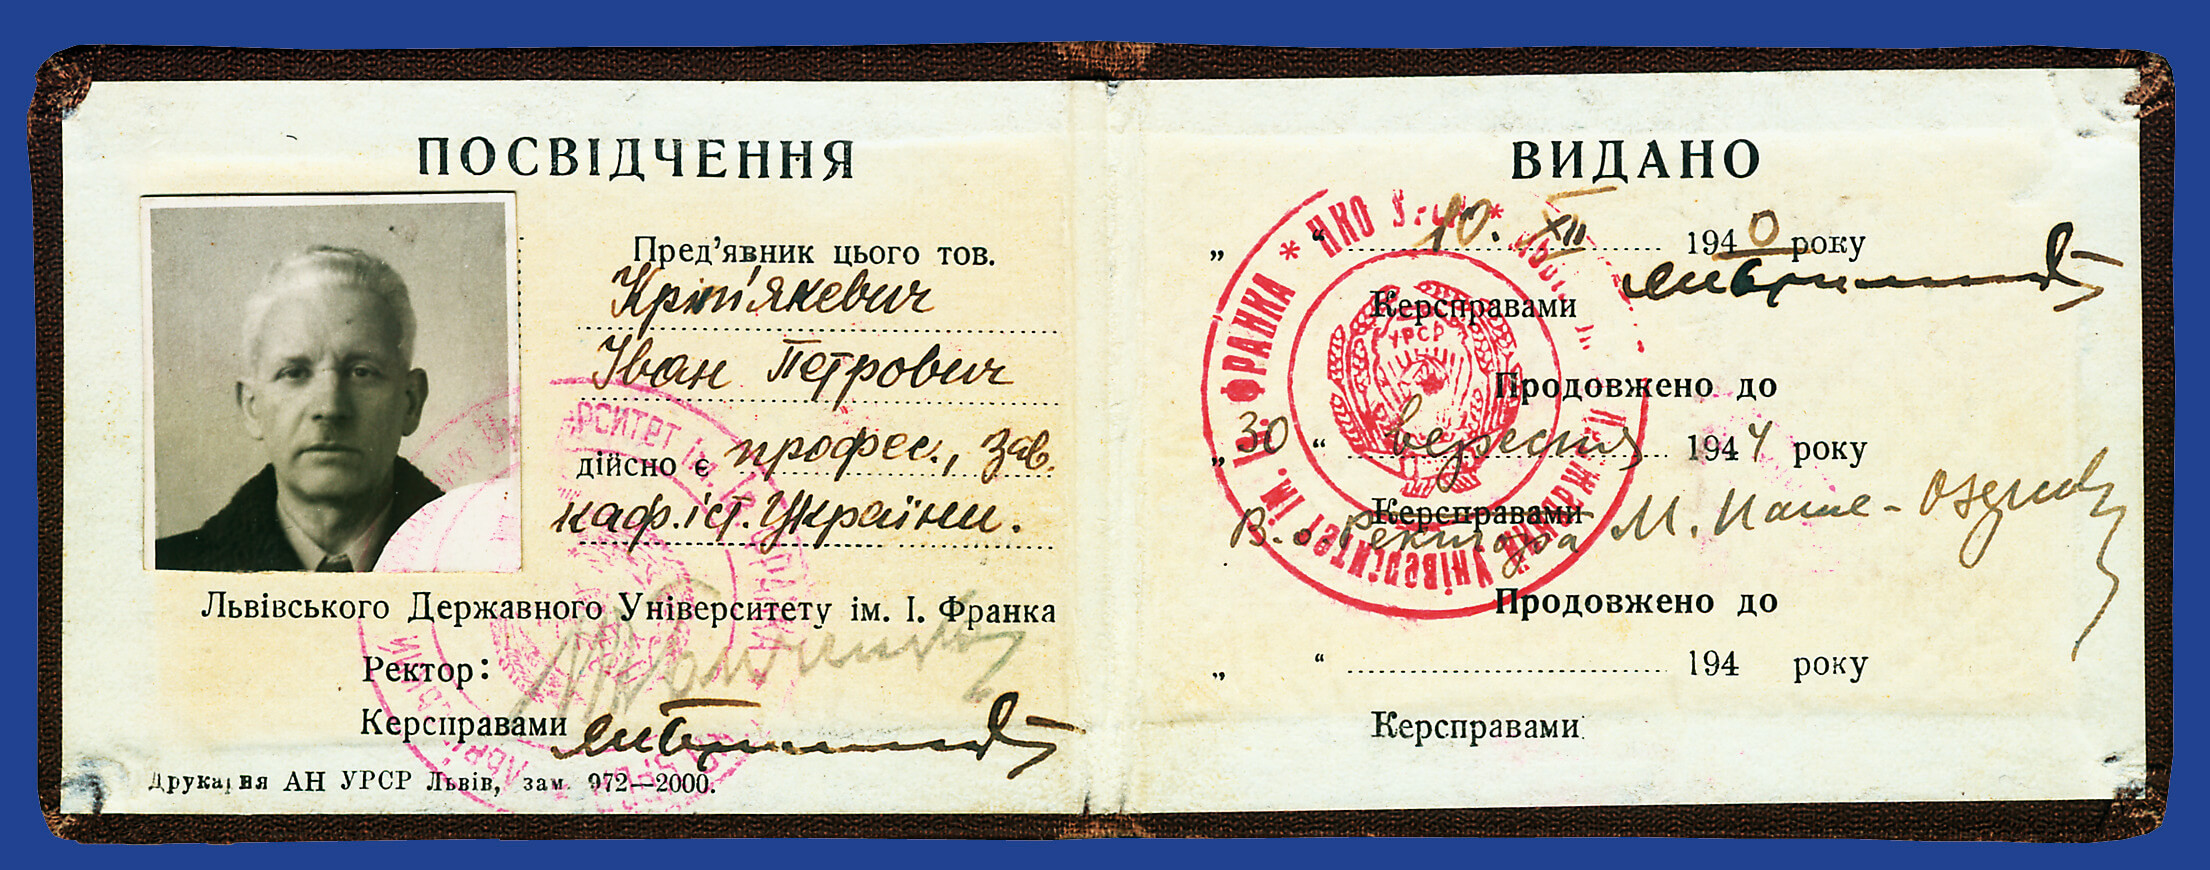 ПОСВІДЧЕННЯ
Пред'явник цього тов.
Крип'якевич
Іван Петрович
дійсно є профес., зав.
каф. іст. України.
Львівського Державного Університету ім. І. Франка
Ректор:
Керсправами
Друкарня АН УРСР Львів, зам. 972—2000.
ВИДАНО
„ “ 10. XII 1940 року
Керсправами
Продовжено до
„30“ вересня 194 року
Керсправами
В. о. Ректора М.
Продовжено до
„ “ 194 року
Керсправами
* НКО УРСР *
Університет ім. Ів. ФРАНКА
УРСР